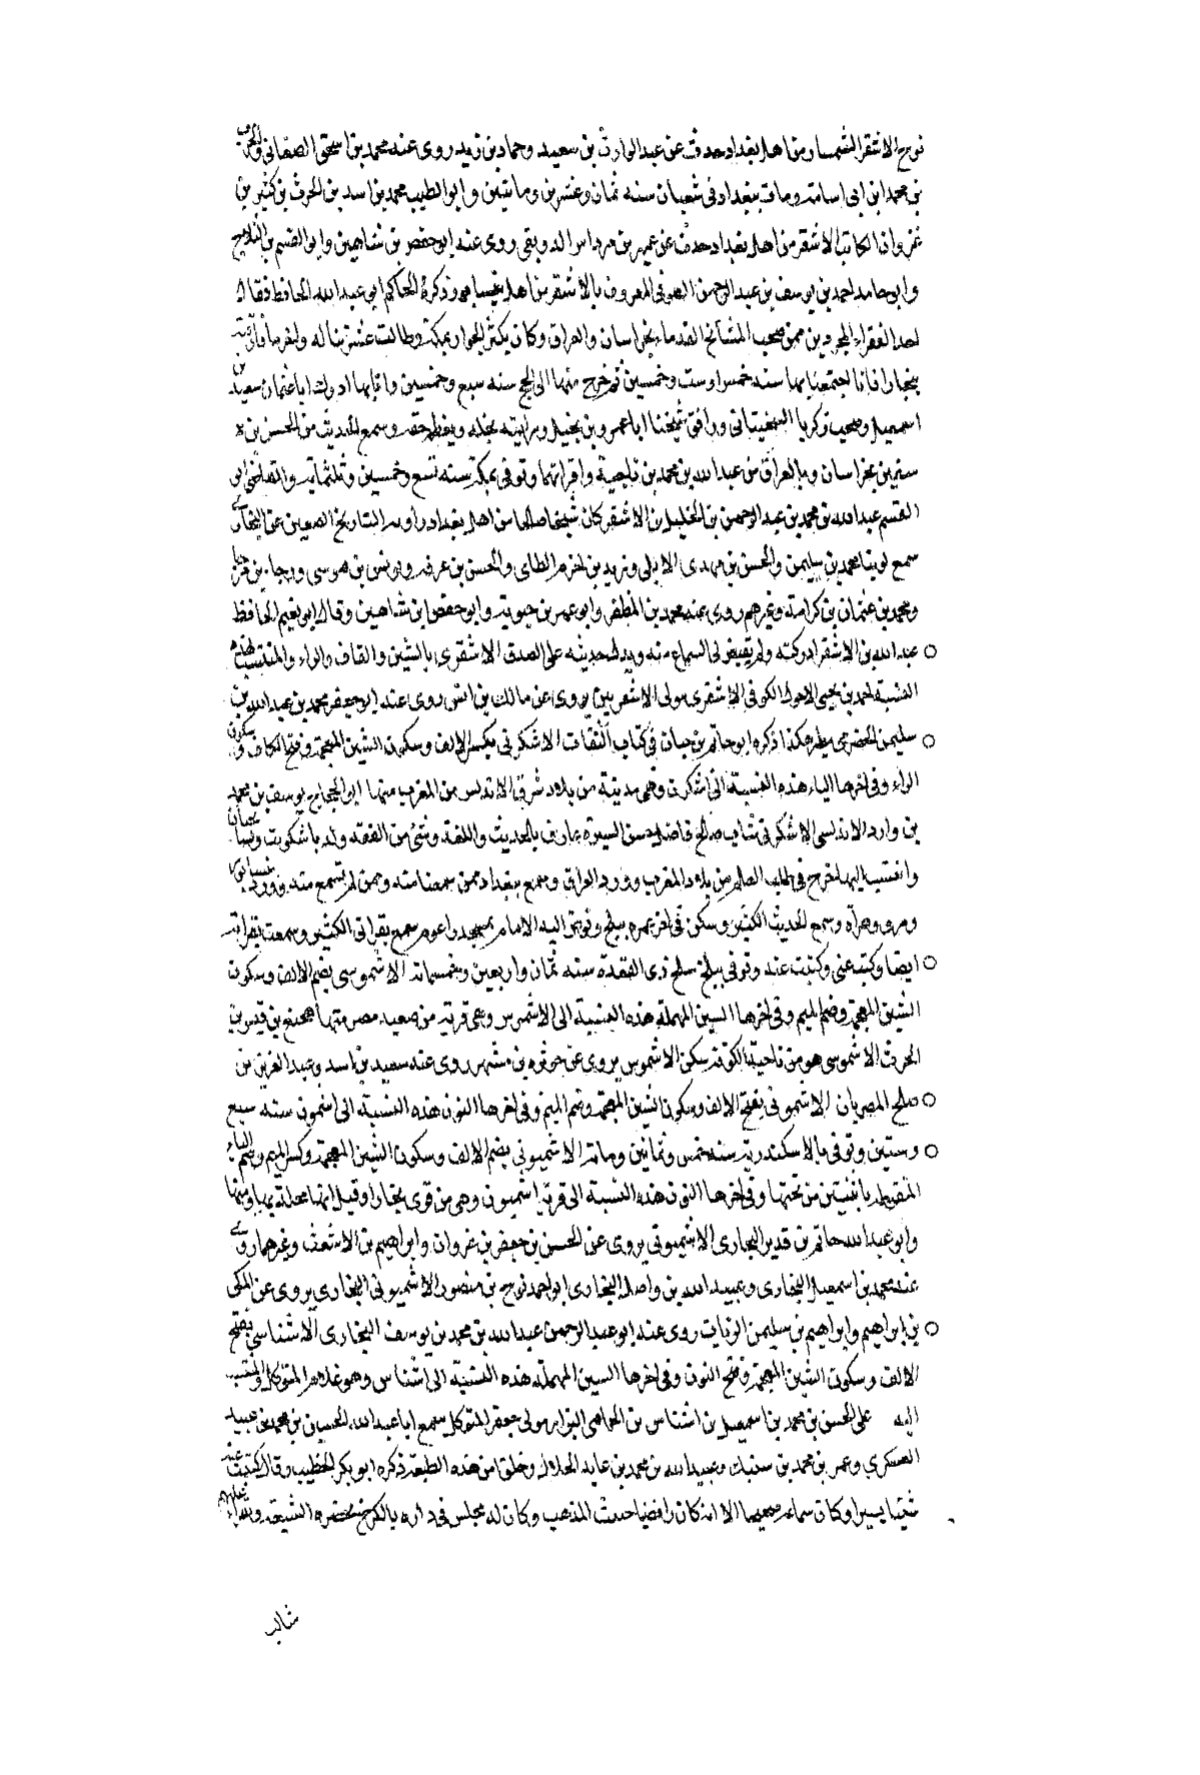 نوح الاشقر الشمسار من اهل بغداد حدث عن عبد الوارث بن سعيد وحماد بن زيد روى عنه محمد بن اسحق الصغاني والحرث
بن محمد ابن ابي اسامة ومات ببغداد في شعبان سنه ثمان وعشرين وماتين وابو الطيب محمد بن اسد بن الحرث بن كثير بن
غزوان الكاتب الاشقر من اهل بغداد حدث عن عمير بن مرداس الدونقي روى عنه ابو حفص بن شاهين وابو القسم بن الثلاج
وابو حامد احمد بن يوسف بن عبد الرحمن الصوفي المعروف بالاشقر من اهل نيسابور ذكره الحاكم ابي عبد الله الحافظ فقال
احد الفقراء المجردين ممن صحب المشائخ القدماء بخراسان والعراق وكان يكثر الجوار بمكة وطالت عشرتنا له
ببخارا فانا اجتمعنا بها سنه خمس اوست وخمسين ثم خرج منها الى الحج سنه سبع وخمسين وادرك ابا عثمان سعيد بن
اسمعيل وصحب زكريا السختياني ورافق شيخنا ابا عمرو بن نجيد ورايته يجله ويعظم حقه وسمع الحديث من الحسن بن
سفين بخراسان وبالعراق من عبد الله بن محمد بن ناجية واقرانهما وتوفي بمكة سنه تسع وخمسين وثلثماية والقاضي ابو
القسم عبد الله بن محمد بن عبد الرحمن بن الخليل بن الاشقر كان شيخا صالحا من اهل بغداد راويه التاريخ الصغير عن البخاري
سمع لوينا محمد بن سليمن والحسن بن مهدى الابلي وزيد بن اخزم الطاى والحسن بن عرفه ويونس بن موسى ورجا بن مرجا
ومحمد بن عثمان بن كرامة وغيرهم روى عنه محمد بن المظفر وابو عمر بن حيوية وابو حفص ابن شاهين وقال ابو نعيم الحافظ
عبد الله بن الاشقر ادركته ولم يقيض لي السماع منه ويدل حديثه على الصدق الاشقرى بالشين والقاف والراء والمنتسب بهذه
النسبة احمد بن يحيى الاحول الكوفي الاشقري مولى الاشعريين يروي عن مالك بن انس روى عنه ابو جعفر محمد بن عبد الله بن
سليمن الحضرمي مطين هكذا ذكره ابو حاتم بن حبان في كتاب الثقات الاشكرني بكسر الالف وسكون الشين المعجمة وفتح الكاف وسكون
الراء وفي اخرها الياء هذه النسبة الى اشكرت وهي مدينة من بلاد شرق الاندلس من المغرب منها ابو الحجاج يوسف بن محمد
بن وارد الاندلسى الاشكرني شاب صالح فاضل حسن السيرة عارف بالحديث واللغة وشئ من الفقه ولد باشكورت ونشا
وانتسب اليها خرج في طلب العلم من بلاد المغرب وورد العراق وسمع ببغداد ممن سمعنا منه وممن لم نسمع منه وورد نيسابور
ومرو وهراة وسمع الحديث الكثير وسكن في اخر عمره ببلخ وفوض اليه الامام بمسجد راعوم سمع بقراتي الكثير وسمعت بقراته
ايضا وكتب عني وكتبت عنه وتوفي ببلخ سلخ ذى القعدة سنه ثمان واربعين وخمسماة الاشموسى بضم الالف وسكون
الشين المعجمة وضم الميم وفي اخرها السين المهملة هذه النسبة الى الاشموس وهي قرية من صعيد مصر منها هجنع بن قيس بن
الحرث الاشموسى هو من ناحية الكوفة سكن الاشموس يروى عن حوثره بن مشهر روى عنه سعيد بن راسد وعبد العزيز بن
صالح المصريان الاشموني بفتح الالف وسكون الشين المعجمة وضم الميم وفي اخرها النون هذه النسبة الى اشمون سنة سبع
وستين وتوفي بالاسكندرية سنه خمس وثمانين ومائة الاشميوني بضم الالف وسكون الشين المعجمة وكسر الميم وضم الياء
المنقوطه باثنتين من تحتها وفي اخرها النون هذه النسبة الى قرية اشميون وهي من قرى بخارا وقيل انها محلة بها ومنها
وابو عبد الله حاتم بن قدير البخارى الاشميوني يروى عن الحسن بن جعفر بن غزوان وابراهيم بن الاشعث وغيرهما روى
عنه محمد بن اسمعيل البخارى وعبيد الله بن واصل البخارى ابو احمد نوح بن منصور الاشميوني البخارى يروى عن المكى
بن ابراهيم وابراهيم بن سليمن الزيات روى عنه ابو عبد الرحمن عبد الله بن محمد بن يوسف البخارى الاشناسى بفتح
الالف وسكون الشين المعجمة وفتح النون وفي اخرها السين المهملة هذه النسبة الى اشناس وهو غلام المتوكل والمنتسب
اليه على الحسن بن محمد بن اسمعيل بن اشناس بن الحمامى البزاز مولى جعفر المتوكل سمع ابا عبد الله الحسين بن محمد بن عبيد
العسكري وعمر بن محمد بن سنبك وعبيد الله بن محمد بن عابد الخلال وخلقا من هذه الطبقة ذكره ابو بكر الخطيب وقال كتبت عنه
شيئا يسيرا وكان سماعه صحيحا الا انه كان رافضيا خبيث المذهب وكان له مجلس في داره بالكرخ يحضره الشيعة ويقراء عليهم